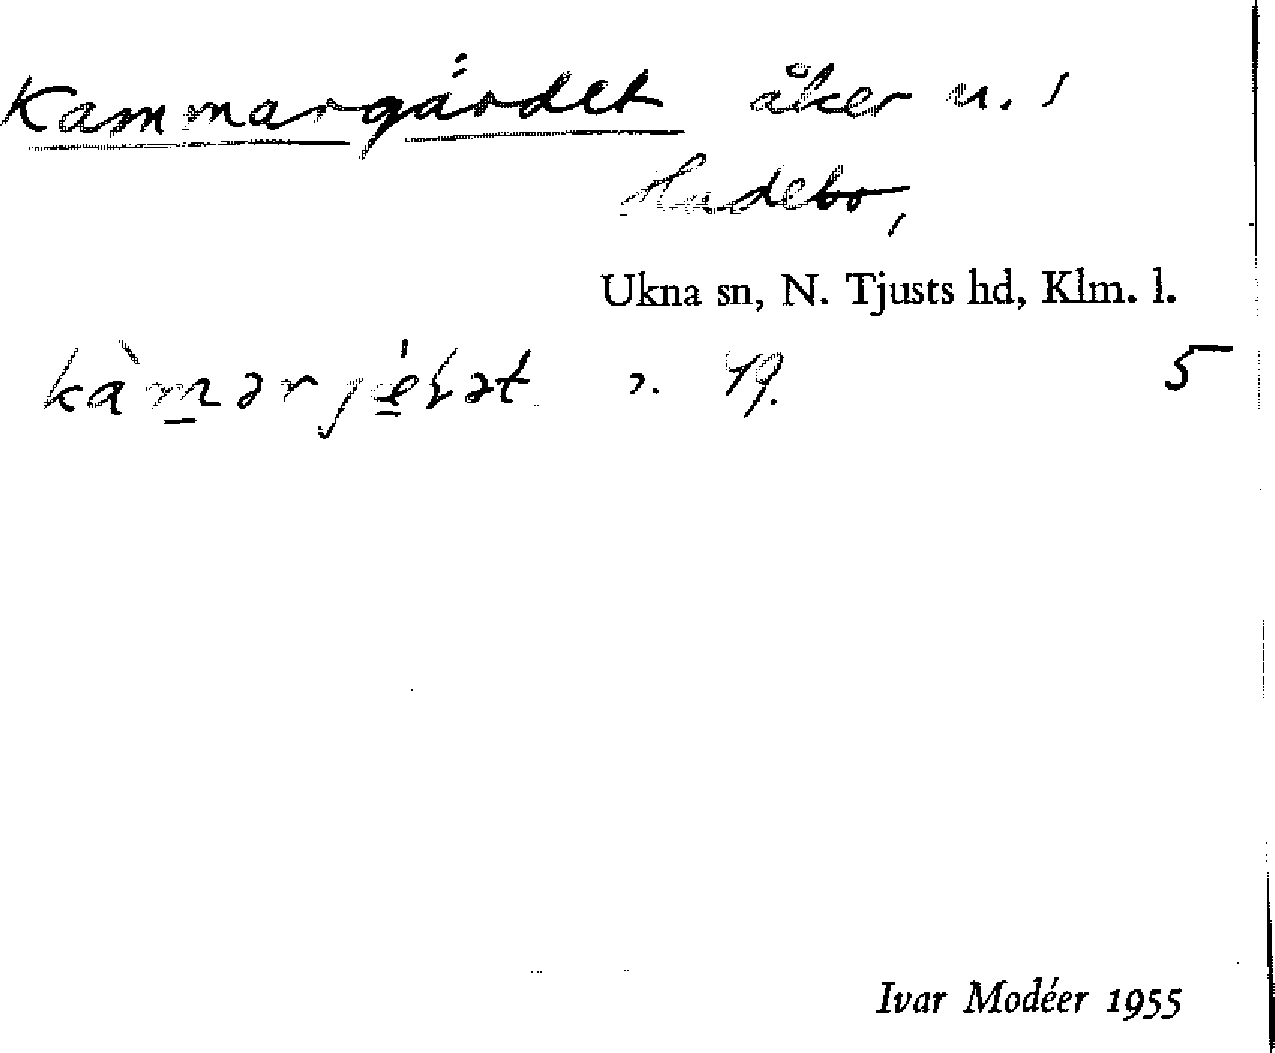 Kammargärdet åker u. 1
Hadebo,
Ukna sn, N. Tjusts hd, Klm. l.
5
Ivar Modéer 1955